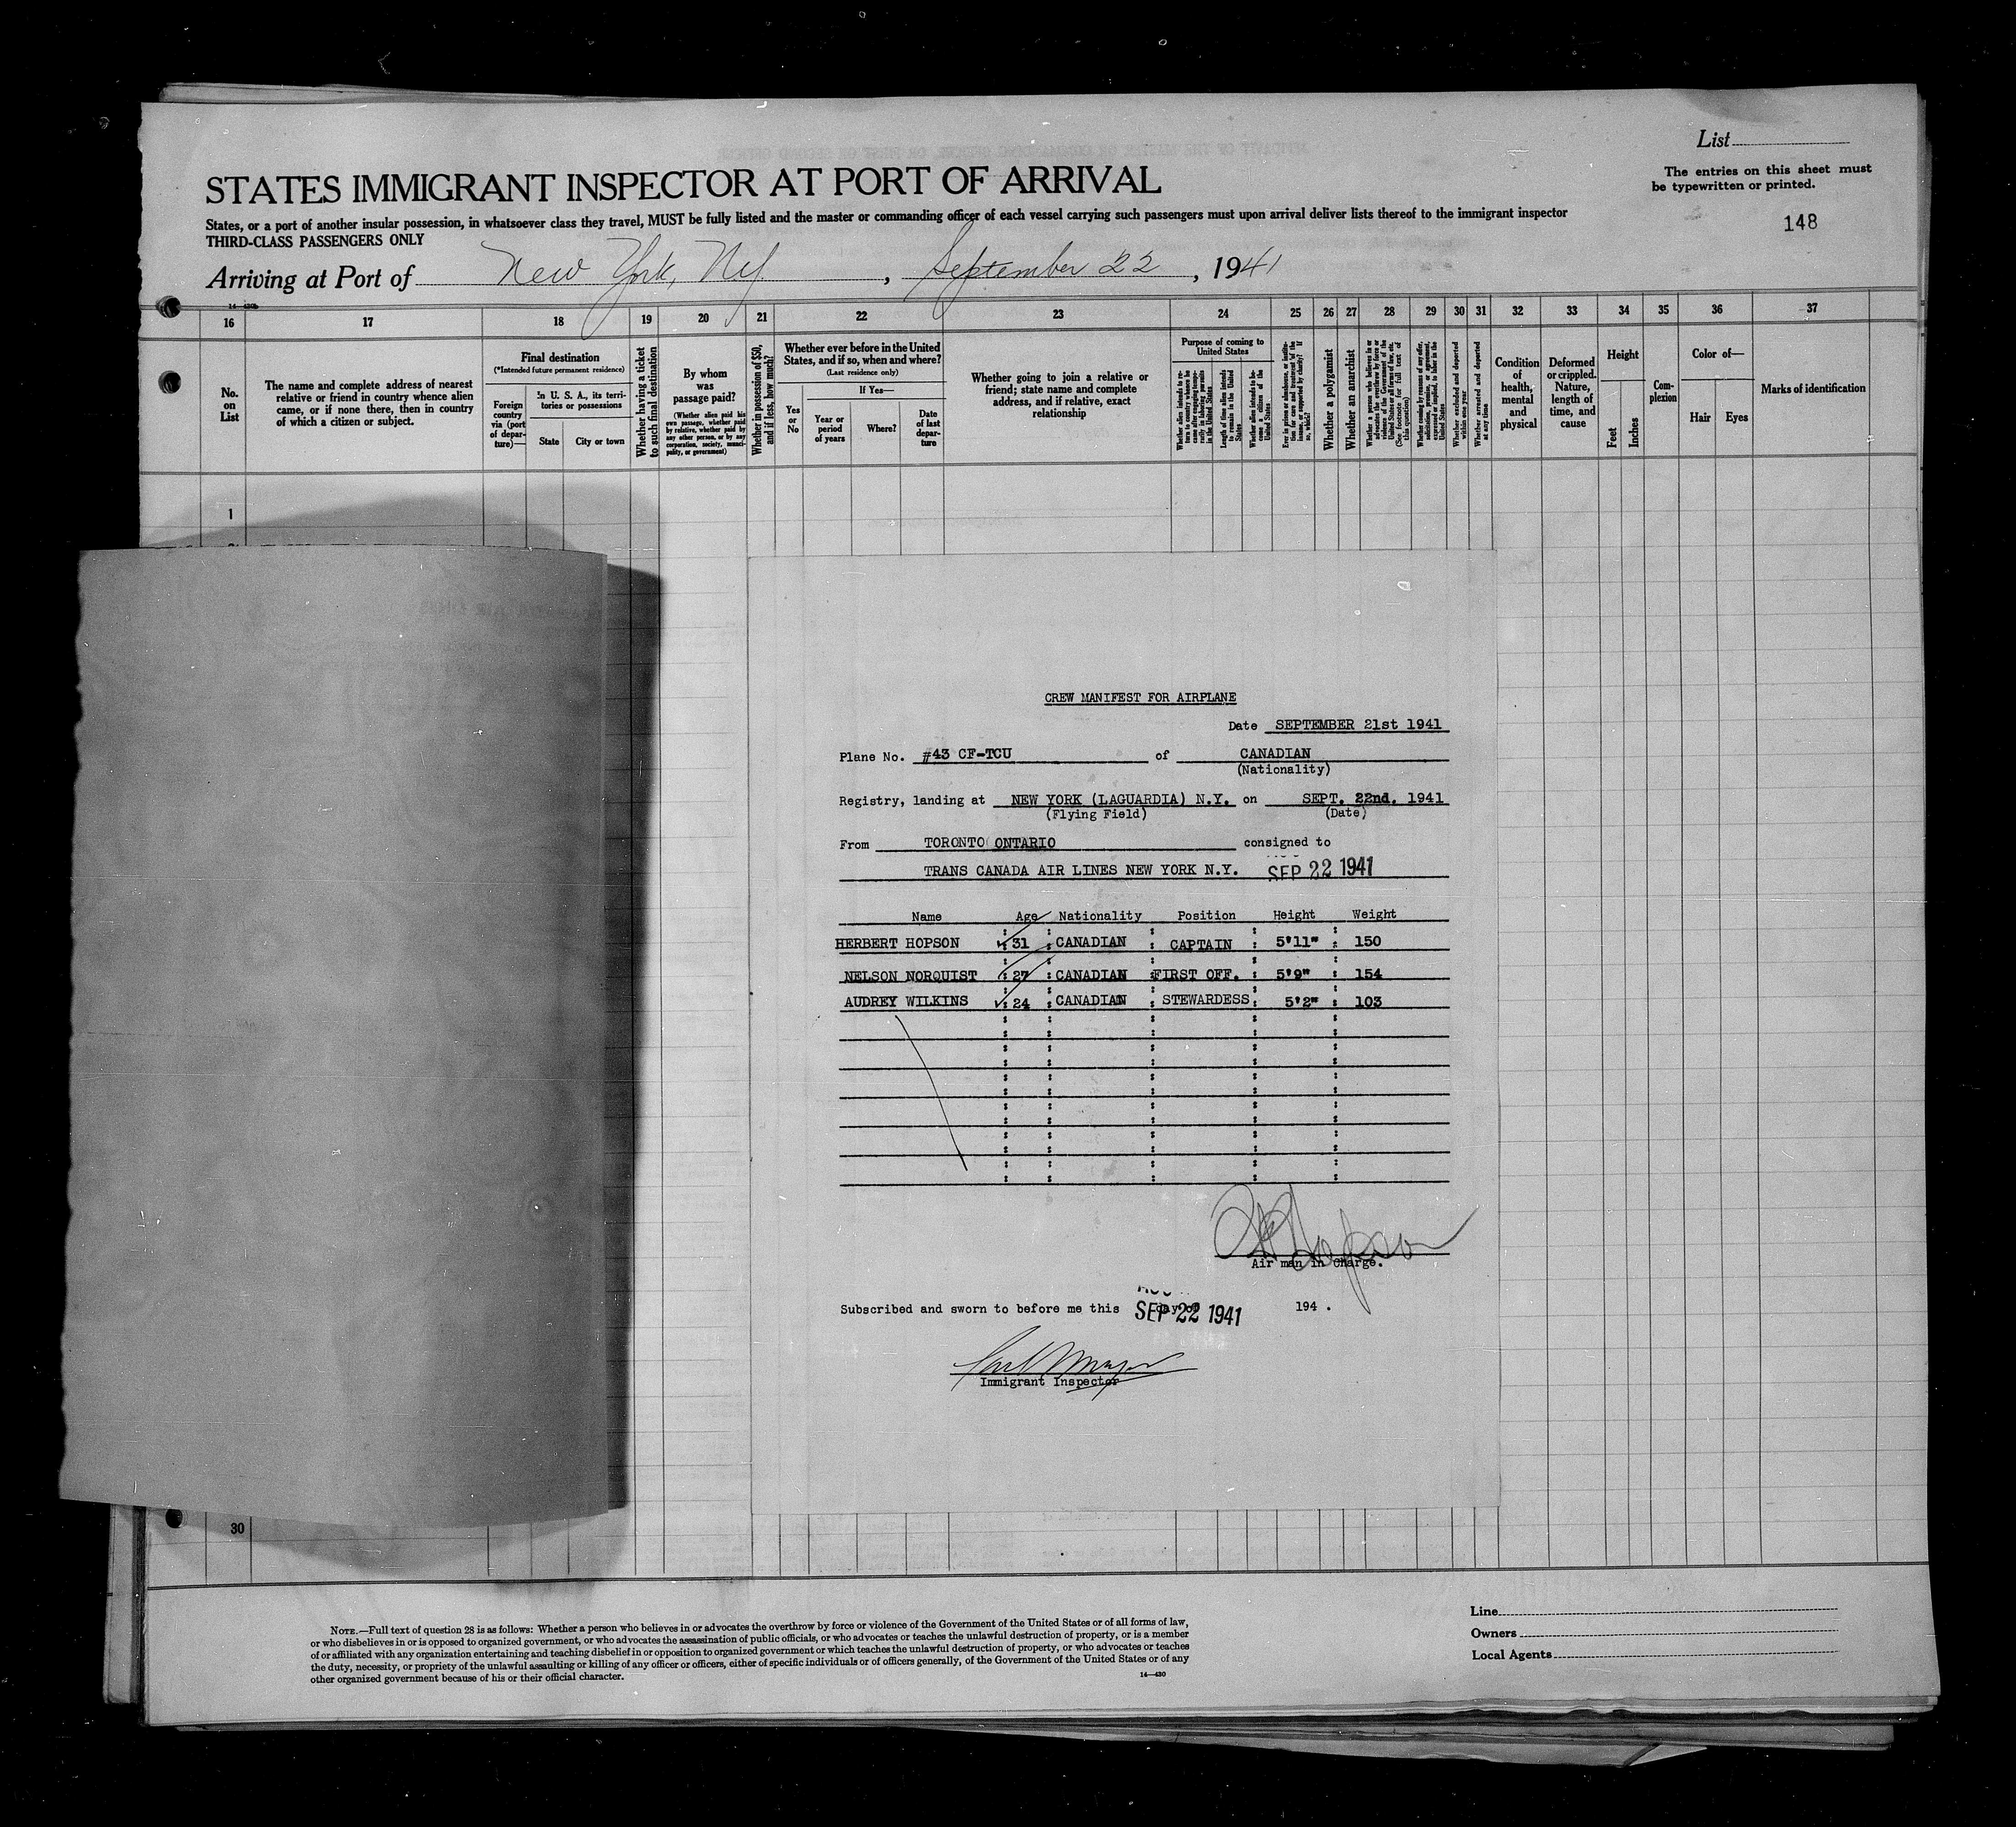 List
The entries on this sheet must
be typewritten or printed.
148
STATES IMMIGRANT INSPECTOR AT PORT OF ARRIVAL
States, or a port of another insular possession, in whatsoever class they travel, MUST be fully listed and the master or commanding officer of each vessel carrying such passengers must upon arrival deliver lists thereof to the immigrant inspector
THIRD-CLASS PASSENGERS ONLY
Arriving at Port of New York, N.Y. , September 22 , 1941
16 17 18 19 20 21 22 23 24 25 26 27 28 29 30 31 32 33 34 35 36 37
No.
on
List
The name and complete address of nearest
relative or friend in country whence alien
came, or if none there, then in country
of which a citizen or subject.
Final destination
(*Intended future permanent residence)
Foreign
country
via (port
of depar-
ture)—
In U. S. A., its terri-
tories or possessions
State
City or town
Whether having a ticket
to such final destination
By whom
was
passage paid?
(Whether alien paid his
own passage, whether paid
by relative, whether paid by
any other person, or by any
corporation, society, munici-
pality, or government)
Whether in possession of $50,
and if less, how much?
Whether ever before in the United
States, and if so, when and where?
(Last residence only)
If Yes—
Yes
or
No
Year or
period
of years
Where?
Date
of last
depar-
ture
Whether going to join a relative or
friend; state name and complete
address, and if relative, exact
relationship
Purpose of coming to
United States
Length of time alien intends
to remain in the United
States
Whether alien intends to be-
come a citizen of the
United States
Whether a polygamist
Whether an anarchist
Whether arrested and deported
at any time
Condition
of
health,
mental
and
physical
Deformed
or crippled.
Nature,
length of
time, and
cause
Height
Feet
Inches
Com-
plexion
Color of—
Hair
Eyes
Marks of identification
1
CREW MANIFEST FOR AIRPLANE
Date SEPTEMBER 21st 1941
Plane No. #43 CF-TCU of CANADIAN
(Nationality)
Registry, landing at NEW YORK (LAGUARDIA) N.Y. on SEPT. 22nd. 1941
(Flying Field) (Date)
From TORONTO ONTARIO consigned to
TRANS CANADA AIR LINES NEW YORK N.Y. SEP 22 1941
Name Age Nationality Position Height Weight
HERBERT HOPSON 31 CANADIAN CAPTAIN 5'11" 150
NELSON NORQUIST 27 CANADIAN FIRST OFF. 5'9" 154
AUDREY WILKINS 24 CANADIAN STEWARDESS 5'2" 103
H Hopson
Air man in Charge.
Subscribed and sworn to before me this day of 194 .
SEP 22 1941
Immigrant Inspector
30
NOTE.—Full text of question 28 is as follows: Whether a person who believes in or advocates the overthrow by force or violence of the Government of the United States or of all forms of law,
or who disbelieves in or is opposed to organized government, or who advocates the assassination of public officials, or who advocates or teaches the unlawful destruction of property, or is a member
of or affiliated with any organization entertaining and teaching disbelief in or opposition to organized government or which teaches the unlawful destruction of property, or who advocates or teaches
the duty, necessity, or propriety of the unlawful assaulting or killing of any officer or officers, either of specific individuals or of officers generally, of the Government of the United States or of any
other organized government because of his or their official character.
14—430
Line
Owners
Local Agents